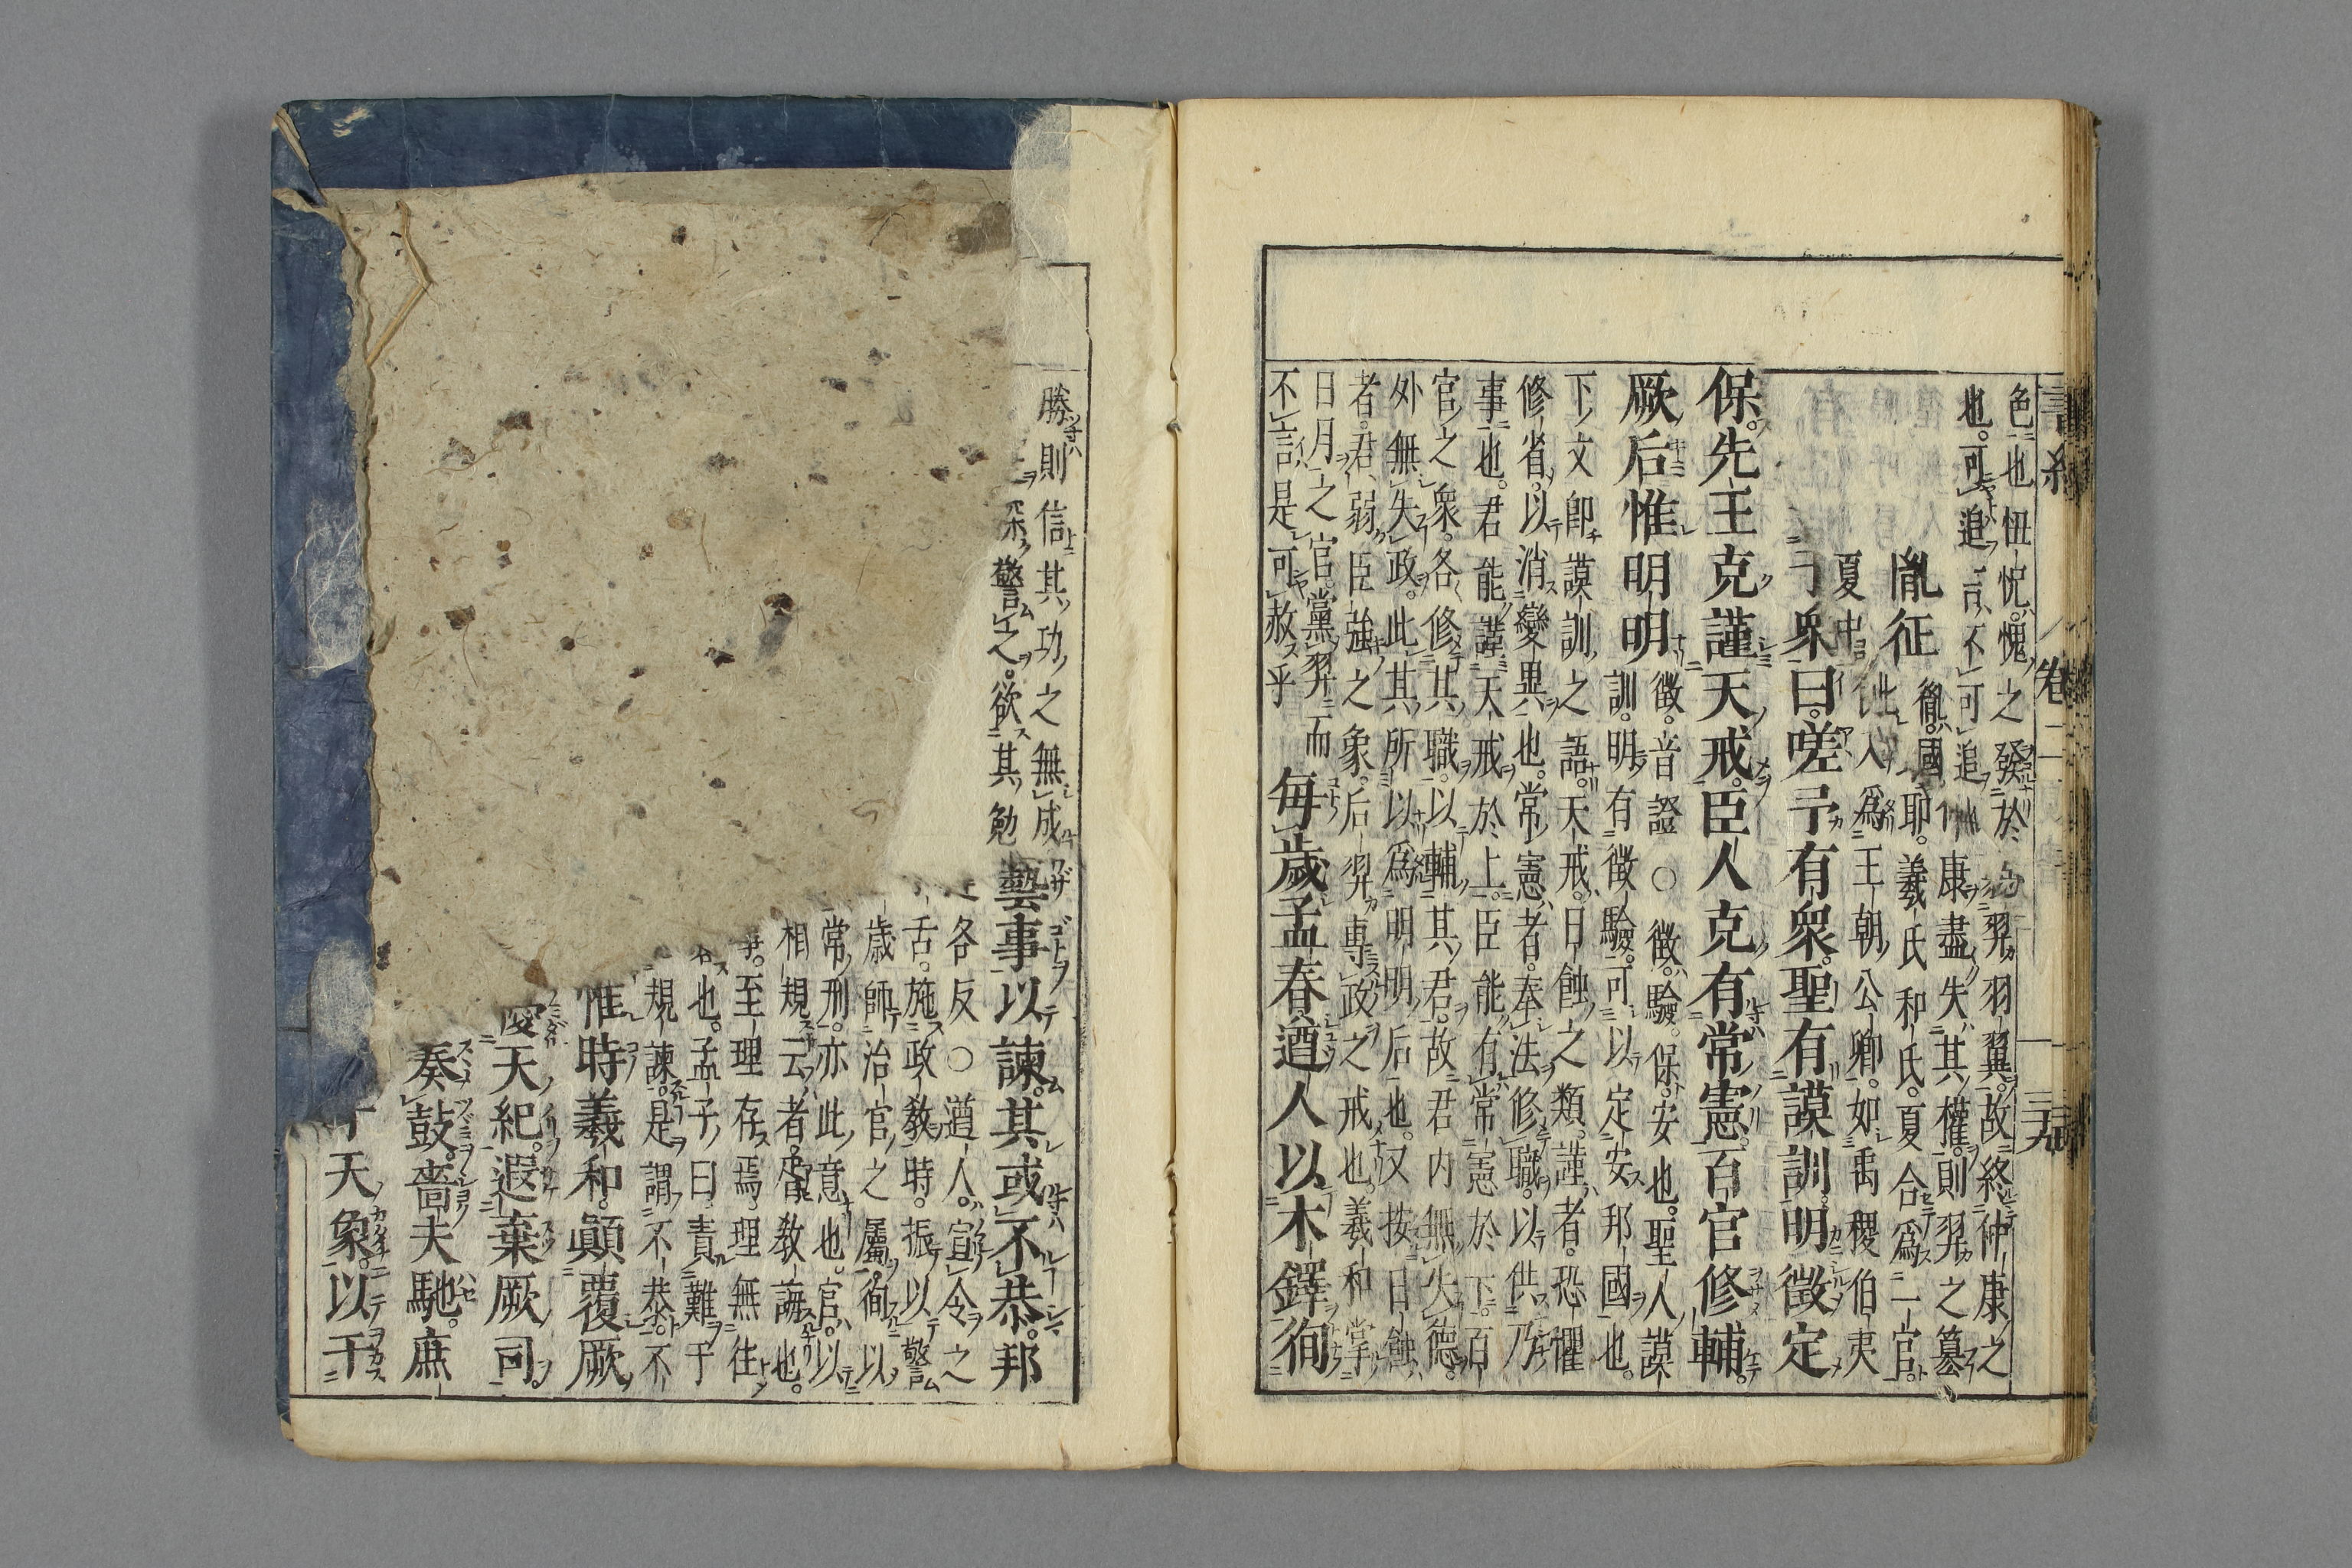 書經 卷二 三十九
色也忸怩愧之發於
也。可追言不可追也
羿羽翼。故終仲康之
康盡失其權。則羿之簒
胤征 胤。國
耶。羲氏和氏。夏合爲二官。
夏中 此人爲王朝公卿。如禹稷伯夷
予衆曰。嗟予有衆。聖有謨訓。明徵定
保。先王克謹天戒。臣人克有常憲。百官修輔。
厥后惟明明 徵。音證○徵。驗。保。安也。聖人謨
訓。明有徵驗。可以定安邦國也。
下文卽謨訓之語。天戒。日蝕之類。謹者。恐懼
修省。以消變異也。常憲者。奉法修職。以供乃
事也。君能謹天戒於上。臣能有常憲於下。百
官之衆。各修其職。以輔其君。故君内無失德。
外無失政。此其所以爲明明后也。又按日蝕
者。君弱臣強之象。后羿專政之戒也。羲和掌
日月之官。黨羿而
不言。是可赦乎 每歲孟春。遒人以木鐸徇
勝則信其功之無成
深警之。欲其勉
藝事以諫。其或不恭。邦
各反○遒人。宣令之
舌。施政教時。振以警
歲師治官之屬。徇以
常刑。亦此意也。官。以
相規云者。胥教誨也。
至理存焉。理無往
也。孟子曰。責難于
規諫。是謂不恭。不
惟時羲和。顚覆厥
天紀。遐棄厥司。
奏鼓。嗇夫馳。庶
天象。以干